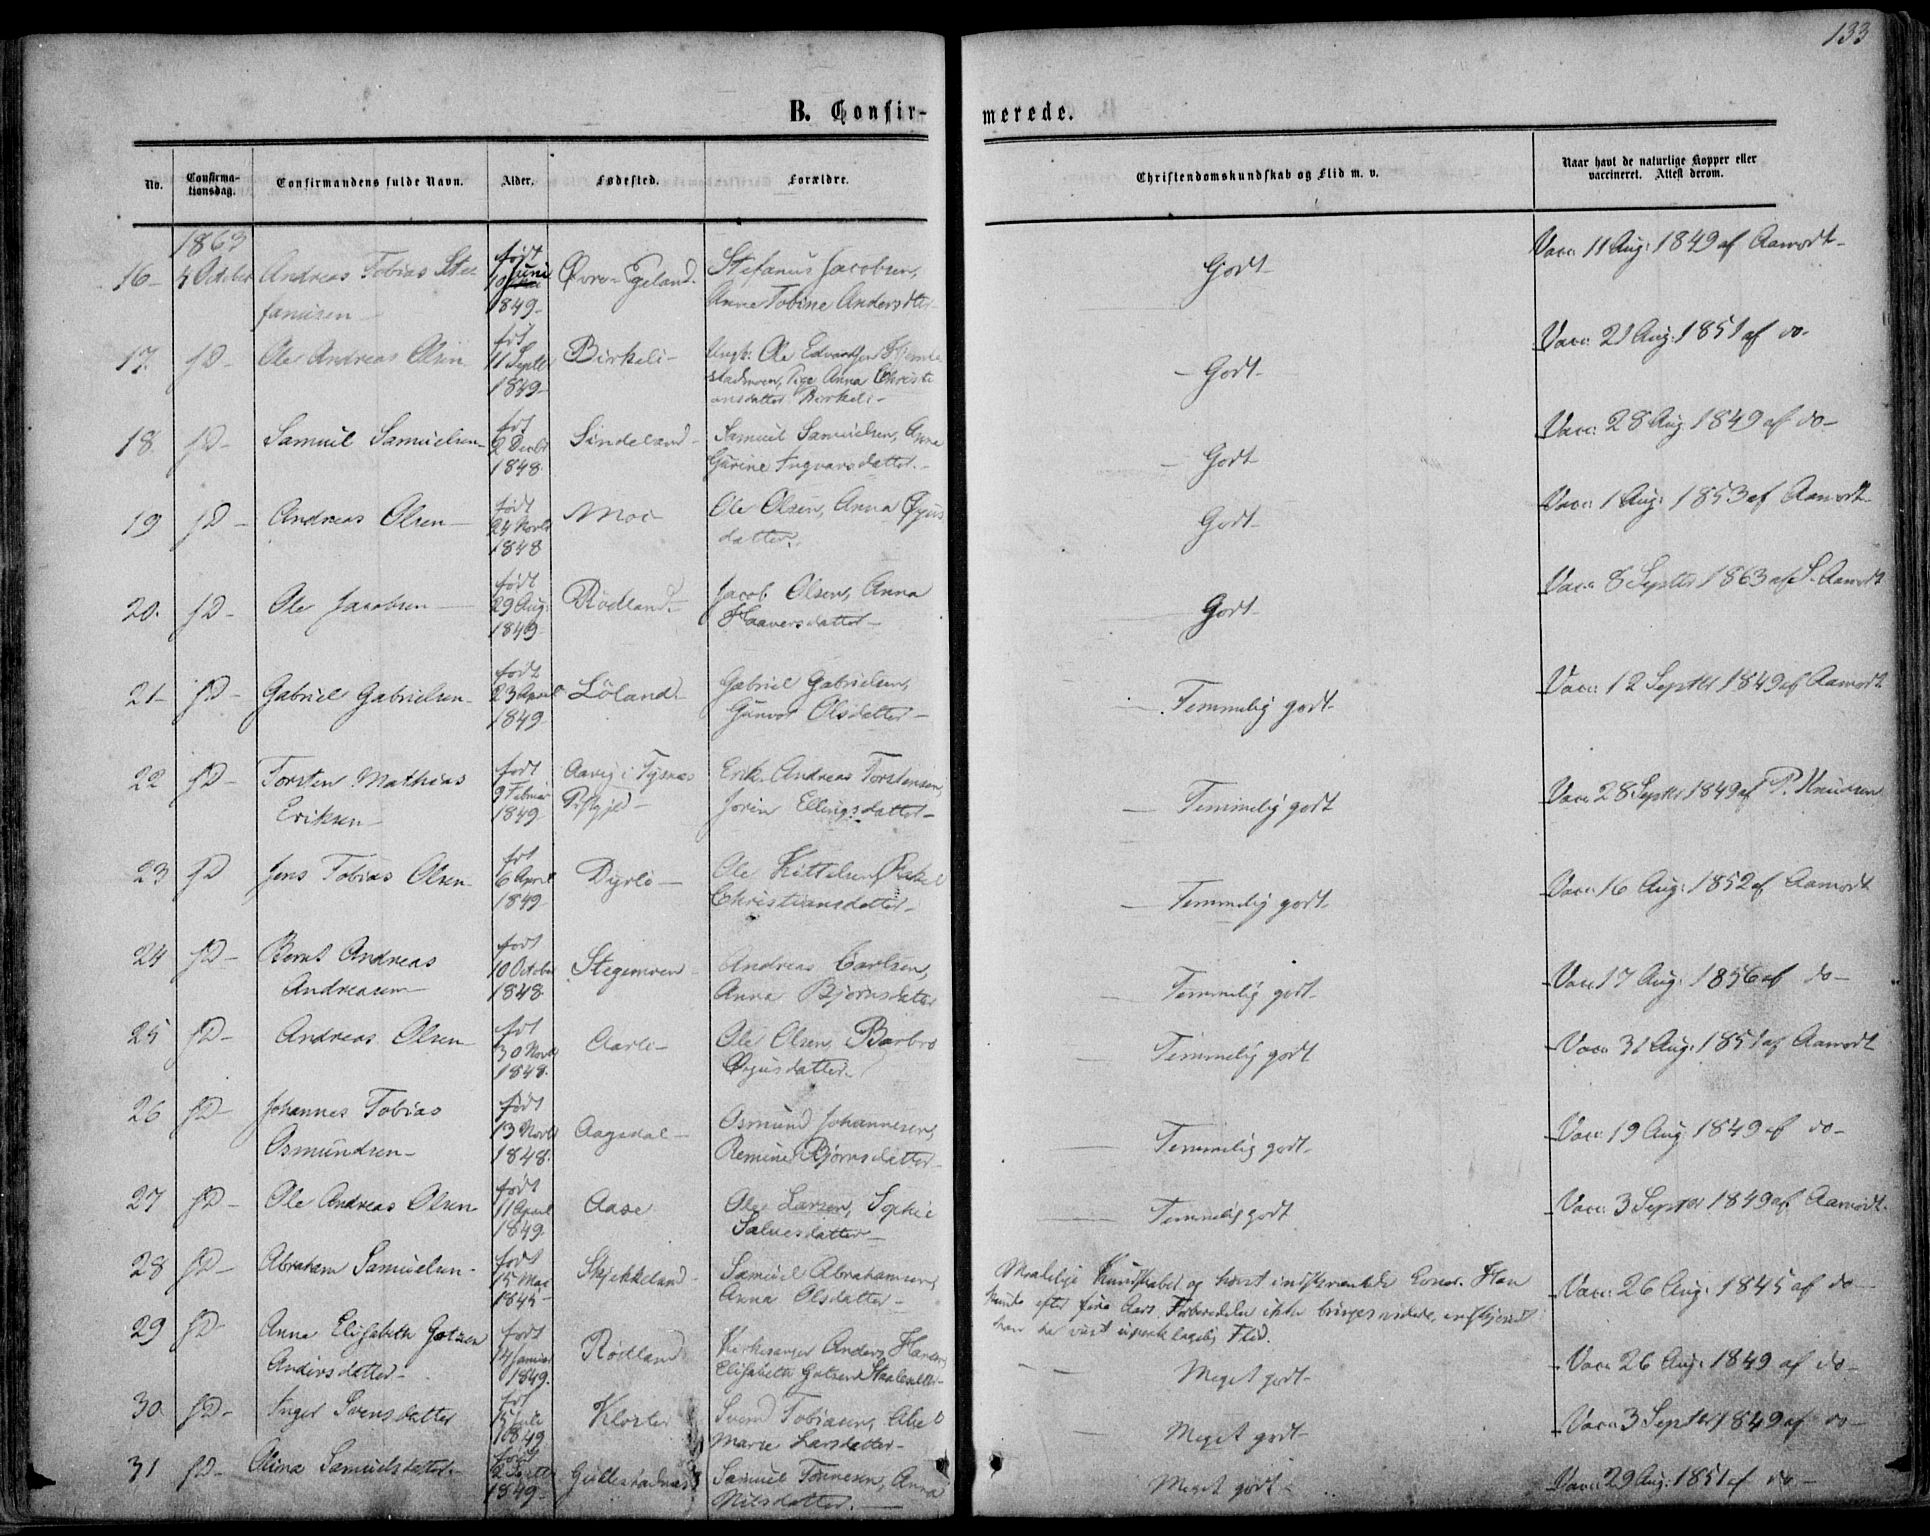 133
B. Confirmerede.
No. Confirmationsdag. Confirmandens fulde Navn. Alder. Fødested. Forældre. Christendomskundskab og Flid m. v. Naar havt de naturlige Kopper eller vaccineret. Attest derom.
1863
16 4 October Andreas Tobias Stefanusen født 10 Juni 1849 Øvre Egeland. Stefanus Jacobsen, Anne Tobine Andersdtter Godt Vacc. 11 Aug: 1849 af Aamodt
17. JD Ole Andreas Olsen fød 11 Septb 1849 Birkeli Ungk: Ole Edvardsen, Pige Anna Christiansdatter Birkeli Godt Vacc. 21 Aug: 1851 af do
18. JD Samuel Samuelsen fød 2 Decbr 1848 Sindeland Samuel Samuelsen, Anne Gurine Ingvarsdatter Godt Vacc. 28 Aug 1849 af do
19 JD Andreas Olsen født 24 Novbr 1848 Moe Ole Olsen, Anna Øyusdatter. Godt Vacc. 1 Aug: 1853 af Aamodt
20. JD Ole Jacobsen født 29 Aug: 1849 Rødland Jacob Olsen, Anna Haaversdatter Godt Vacc. 8 Septbr 1863 af S. Aamodt
21 JD Gabriel Gabrielsen født 23 April 1849 Löland Gabriel Gabrielsen, Gunvor Olsdatter Temmelig godt Vacc. 12 Septbr 1849 af Aamodt
22 JD Torsten Mathias Eriksen født 9 Februar 1849 i Tysnæs Erik Andreas Torstensen, Jorin Ellingsdatter Temmelig godt Vacc. 28 Septbr 1849 af P. Knudsen
23 JD Jens Tobias Olsen fød 6 April 1849 Dyrli Ole Kittelsen, Rakel Christiansdatter Temmelig godt Vacc. 16 Aug: 1852 af Aamodt
24 JD Bernt Andreas Andreasen født 10 October 1848 Stegemoen Andreas Carlsen, Anna Bjørnsdatter Temmelig godt Vacc. 17 Aug: 1856 af do
25 JD Andreas Olsen fød 30 Novbr 1848. Aarli Ole Olsen, Barbro Øyusdatter Temmelig godt Vacc. 31 Aug: 1851 af Aamodt
26 JD Johannes Tobias Osmundsen født 13 Novbr 1848. Aagedal Osmund Johannesen, Bjørnsdatter Temmelig godt Vacc. 19 Aug: 1849 af do
27 JD Ole Andreas Olsen født 11 April 1849. Aase Ole Larsen, Sophie Salvesdatter Temmelig godt Vacc. 3 Septbr 1849 af Aamodt.
28 JD Abraham Samuelsen født 15 Mai 1845 Skjekkeland Samuel Abrahamsen, Anna Olsdatter Maalelige Kundskaber og høist indskrænkede Evner. Han kunde efter fire Aars Forberedelse ikke bringes videre, endskjøndt han har viist upaaklagelig Flid. Vacc. 26 Aug: 1845 af do
29 JD Anna Elisabeth Gotzen Andersdatter født 14 Januar 1849. Rødland Kirkesanger Anders Hansen, Elisabeth Gotzen Meget godt Vacc. 26 Aug: 1849 af do
30 JD Inger Svensdatter fød 15 Juli 1849 Kloster Svend Tobiasen, Abel Marie Larsdatter Meget godt Vacc. 3 Septbr 1849 af do
31 JD Olina Samuelsdatter født 2 Septbr 1849 Gullestadnæs Samuel Tønnesen, Anna Nilsdatter. Meget godt Vacc. 29 Aug: 1851 af do